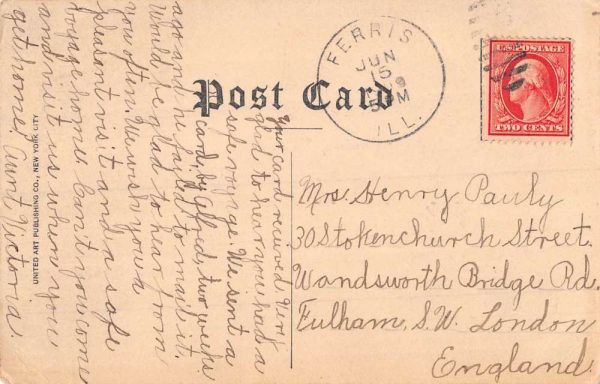 Post Card
FERRIS
JUN
15
5 PM
ILL.
U.S. POSTAGE
TWO CENTS
Your card received Very
glad to hear you had a
safe voyage. We sent a
card, by Alfred, two weeks
ago and he failed to mail it.
Would be glad to hear from
you often. We wish you a
pleasant visit and a safe
voyage home. Can't you come
and visit us when you
get home? Aunt Victoria.
UNITED ART PUBLISHING CO., NEW YORK CITY
Mrs. Henry Pauly
30 Stokenchurch Street.
Wandsworth Bridge Rd.
Fulham, S.W. London
England.